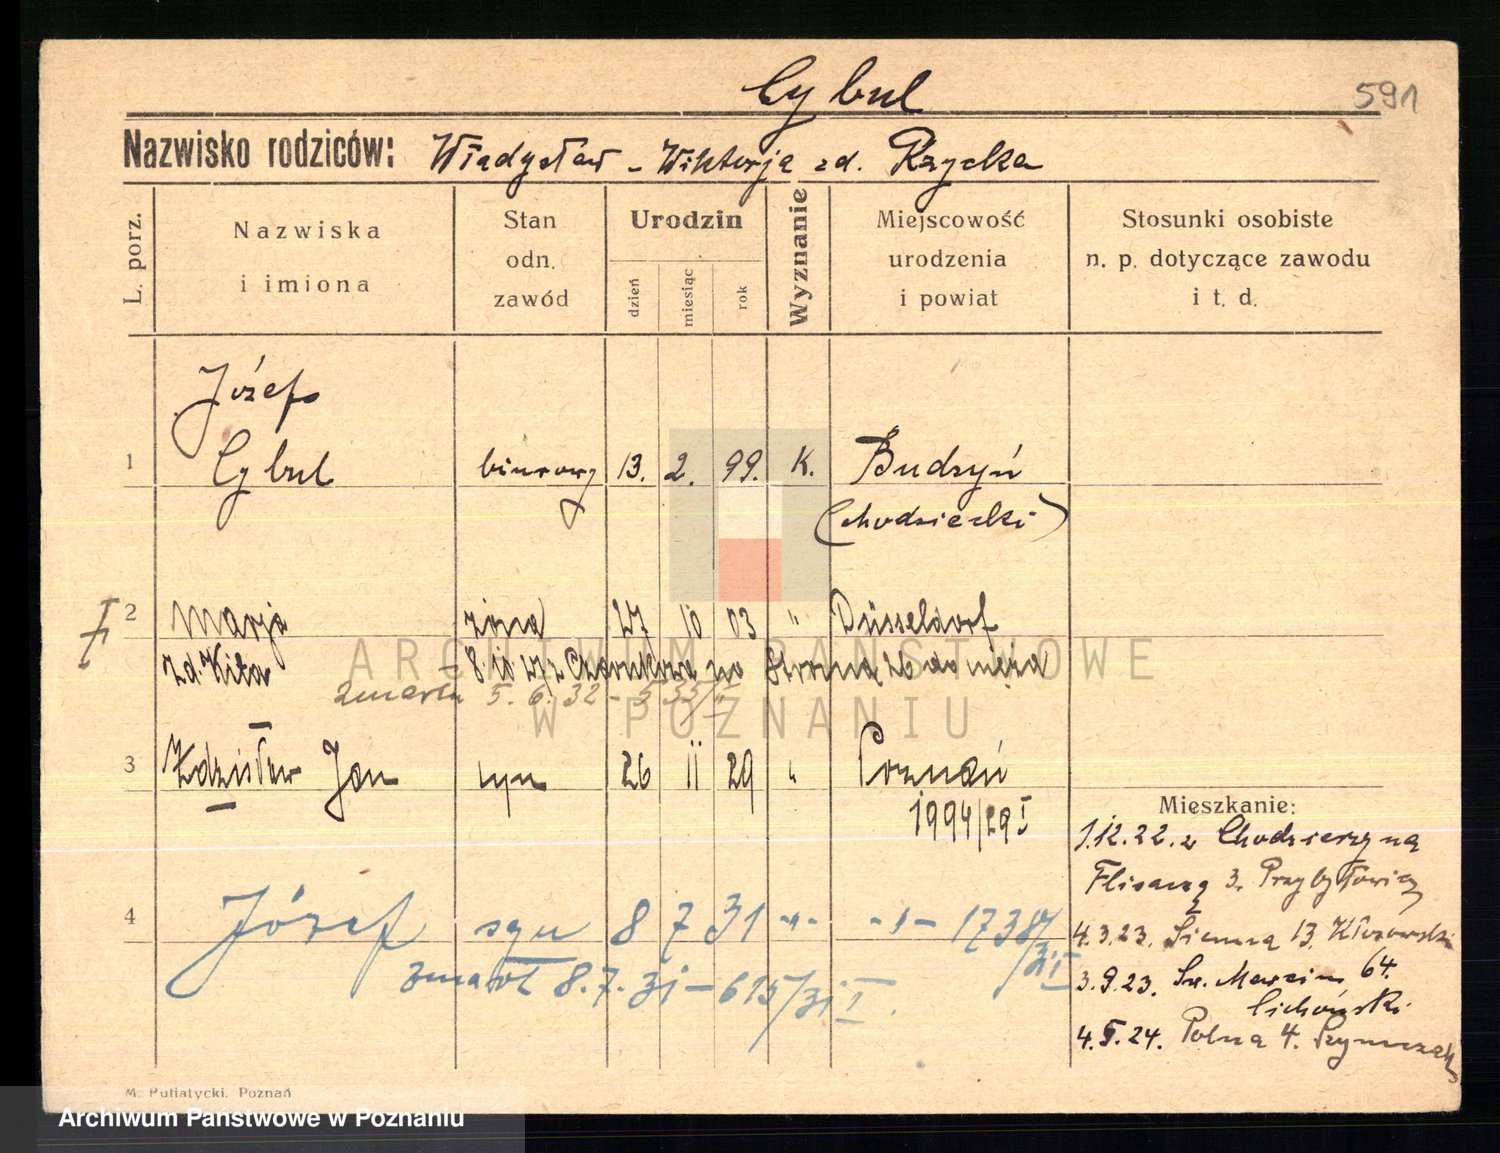 Cybul
591
Nazwisko rodziców: Władysław - Wiktorja zd. Rzycka
L. porz.
Nazwiska i imiona
Stan odn. zawód
Urodzin
dzień
miesiąc
rok
Wyznanie
Miejscowość urodzenia i powiat
Stosunki osobiste n. p. dotyczące zawodu i t. d.
Józef
1 Cybul biurowy 13. 2. 99. K. Budzyń
(chodzieski)
2 Marja żona 27 10 03 " Düsseldorf
zd. Kita - 8. 27 z Czarnkowa na Stromą 26 do męża
zmarła 5. 6. 32 - 535/
3 Zdzisław Jan syn 26 II 29 " Poznań
1994/29 I
Mieszkanie:
1.12.22. z Chodzieży na
Flisaczą 3. Przybyłowicz
4 Józef syn 8 7 31 -"- -"- 1738/31 I
zmarł 8.7.31 - 615/31 I.
4.3.23. Sienna 13. Kłosowski
3.9.23. Św. Marcin 64.
Cichoński
4.5.24. Polna 4. Szymczak
M. Putiatycki. Poznań
ARCHIWUM PAŃSTWOWE
W POZNANIU
Archiwum Państwowe w Poznaniu